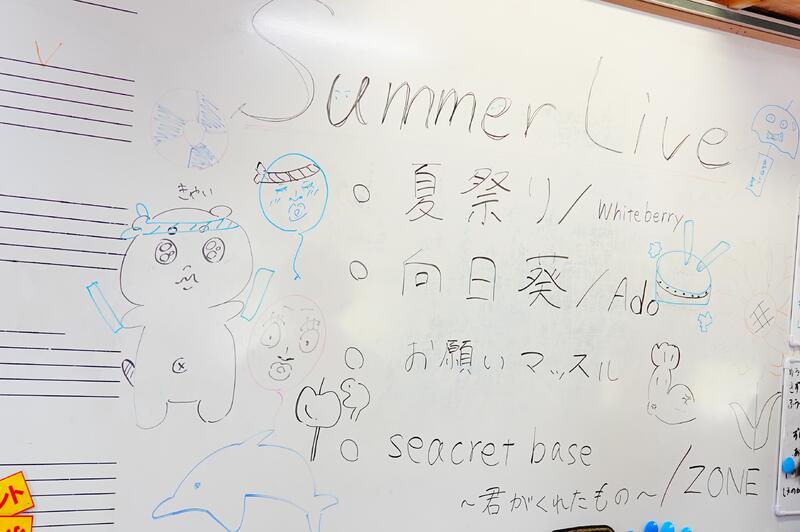 Summer Live
きゃい
夏祭り/Whiteberry
向日葵/Ado
お願いマッスル
seacret base
~君がくれたもの~/ZONE
ント